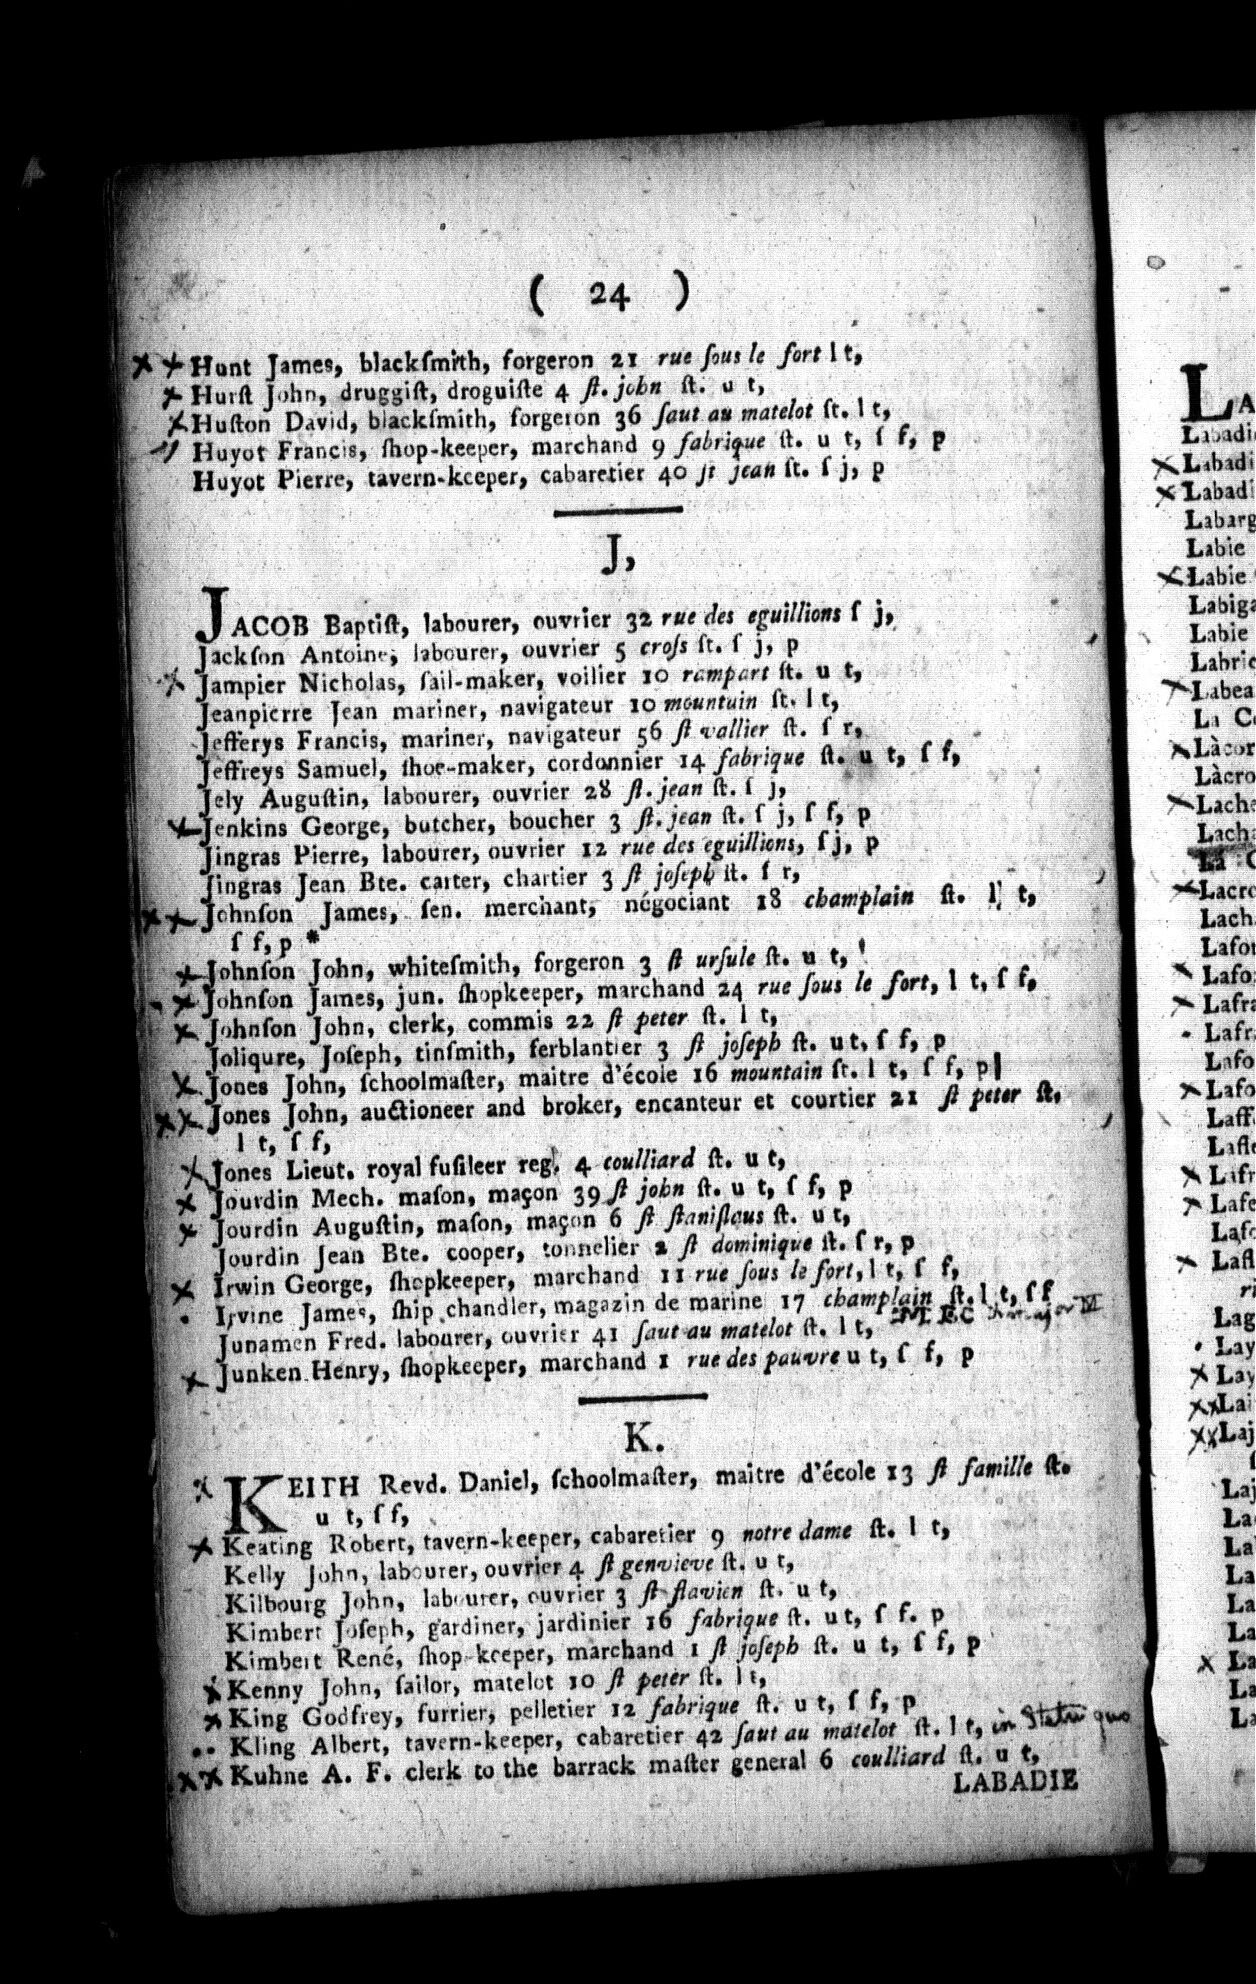 ( 24 )
Hunt James, blackſmith, forgeron 21 rue ſous le fort l t,
Hurſt John, druggiſt, droguiſte 4 ſt. john ſt. u t,
Huſton David, blackſmith, forgeron 36 ſaut au matelot ſt. l t,
Huyot Francis, ſhop-keeper, marchand 9 fabrique ſt. u t, ſ f, p
Huyot Pierre, tavern-keeper, cabaretier 40 ſt jean ſt. ſ j, p
J,
JACOB Baptiſt, labourer, ouvrier 32 rue des eguillions ſ j,
Jackſon Antoine, labourer, ouvrier 5 croſs ſt. ſ j, p
Jampier Nicholas, ſail-maker, voilier 10 rampart ſt. u t,
Jeanpierre Jean mariner, navigateur 10 mountain ſt. l t,
Jefferys Francis, mariner, navigateur 56 ſt vallier ſt. ſ r,
Jeffreys Samuel, ſhoe-maker, cordonnier 14 fabrique ſt. u t, ſ f,
Jely Auguſtin, labourer, ouvrier 28 ſt. jean ſt. ſ j,
Jenkins George, butcher, boucher 3 ſt. jean ſt. ſ j, ſ f, p
Jingras Pierre, labourer, ouvrier 12 rue des eguillions, ſ j, p
Jingras Jean Bte. carter, chartier 3 ſt joſeph ſt. ſ r,
Johnſon James, ſen. merchant, négociant 18 champlain ſt. l t,
ſ f, p *
Johnſon John, whiteſmith, forgeron 3 ſt urſule ſt. u t,
Johnſon James, jun. ſhopkeeper, marchand 24 rue ſous le fort, l t, ſ f,
Johnſon John, clerk, commis 22 ſt peter ſt. l t,
Joliqure, Joſeph, tinſmith, ferblantier 3 ſt joſeph ſt. u t, ſ f, p
Jones John, ſchoolmaſter, maitre d'école 16 mountain ſt. l t, ſ f, p
Jones John, auctioneer and broker, encanteur et courtier 21 ſt peter ſt.
l t, ſ f,
Jones Lieut. royal fuſileer reg. 4 coulliard ſt. u t,
Jourdin Mech. maſon, maçon 39 ſt john ſt. u t, ſ f, p
Jourdin Auguſtin, maſon, maçon 6 ſt ſtaniſlaus ſt. u t,
Jourdin Jean Bte. cooper, tonnelier 2 ſt dominique ſt. ſ r, p
Irwin George, ſhopkeeper, marchand 11 rue ſous le fort, l t, ſ f,
Irvine James, ſhip chandler, magazin de marine 17 champlain ſt. l t, ſ f
Junamen Fred. labourer, ouvrier 41 ſaut au matelot ſt. l t,
Junken Henry, ſhopkeeper, marchand 1 rue des pauvre u t, ſ f, p
K.
KEITH Revd. Daniel, ſchoolmaſter, maitre d'école 13 ſt famille ſt.
u t, ſ f,
Keating Robert, tavern-keeper, cabaretier 9 notre dame ſt. l t,
Kelly John, labourer, ouvrier 4 ſt genvieve ſt. u t,
Kilbourg John, labourer, ouvrier 3 ſt flavien ſt. u t,
Kimbert Joſeph, gardiner, jardinier 16 fabrique ſt. u t, ſ f. p
Kimbert René, ſhop-keeper, marchand 1 ſt joſeph ſt. u t, ſ f, p
Kenny John, ſailor, matelot 10 ſt peter ſt. l t,
King Godfrey, furrier, pelletier 12 fabrique ſt. u t, ſ f, p
Kling Albert, tavern-keeper, cabaretier 42 ſaut au matelot ſt. l t, in Statu quo
Kuhne A. F. clerk to the barrack maſter general 6 coulliard ſt. u t,
LABADIE